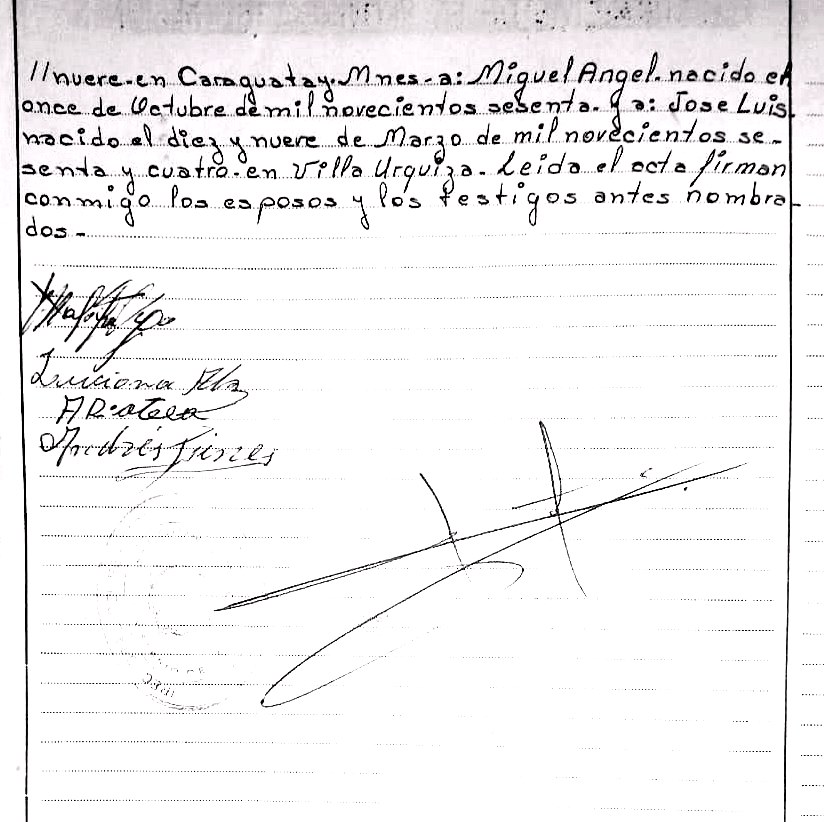 //nueve-en Caraguatay. Mnes-a: Miguel Angel. nacido el
once de Octubre de mil novecientos sesenta. y a: Jose Luis.
nacido el diez y nueve de Marzo de mil novecientos se-
senta y cuatro-en Villa Urquiza. Leida el acta firman
conmigo los esposos y los testigos antes nombra-
dos-
Luciana
Andrés Funes